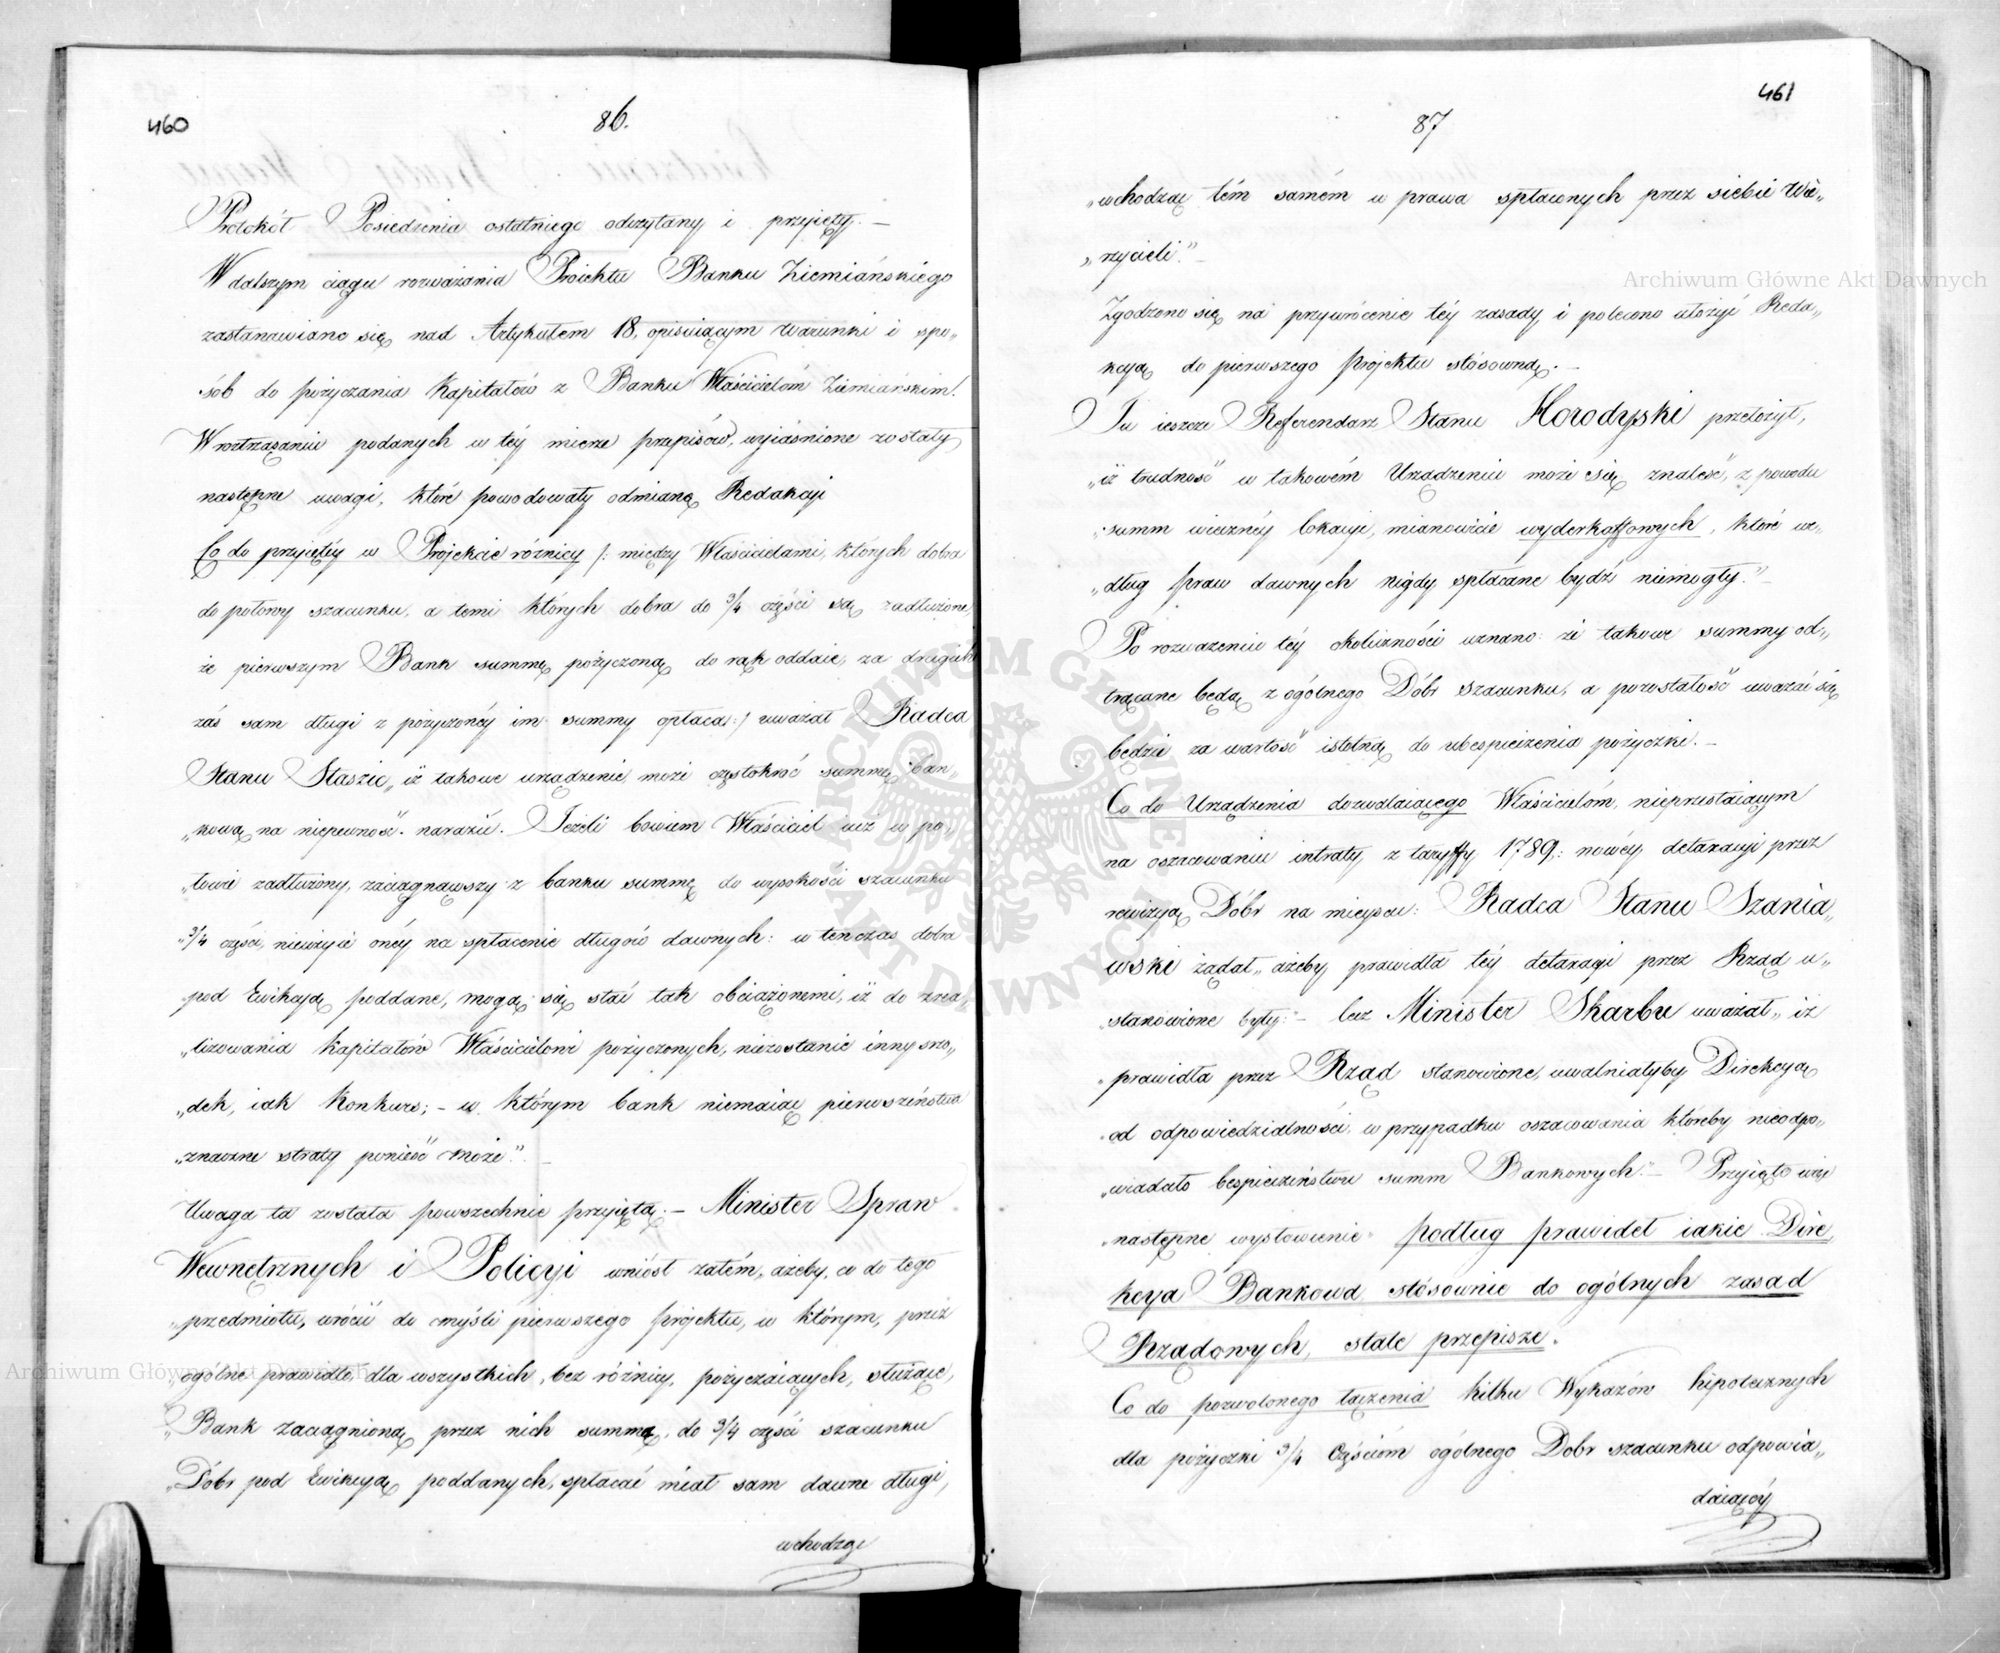 460
86.
Protokół Posiedzenia ostatniego odczytany i przyięty. —
W dalszym ciągu rozważania Proiektu Banku Ziemiańskiego
zastanawiano się nad Artykułem 18, opisuiącym warunki i spo„
sób do pożyczania Kapitałów z Banku Właścicielóm Ziemiańskim.
W roztrząsaniu podanych w téy mierze przepisów, wyiaśnione zostały
następne uwagi, które powodowały odmianę Redakcyi
Co do przyiętéy w Projekcie różnicy /: między Właścicielami, których dobra
do połowy szacunku, a temi których dobra do 3/4 części są zadłużone,
że pierwszym Bank summę pożyczoną do rąk oddaie, za drugich
zaś sam długi z pożyczonéy im summy opłaca :/ uważał Radca
Stanu Staszic „iż takowe urządzenie może częstokroć summę ban„
„kową na niepewność narazić. Jeżeli bowiem Właściciel iuż w po„
„łowie zadłużony, zaciągnąwszy z banku summę do wysokości szacunku
„3/4 części, nieużyie onéy na spłacenie długów dawnych: w tenczas dobra
„pod Ewikcyą poddane, mogą się stać tak obciążonemi, iż do zrea„
„lizowania Kapitałów Właścicielowi pożyczonych, niezostanie inny śro„
„dek, iak Konkurs; – w którym bank niemaiąc pierwszeństwa
„znaczne straty ponieść może”. —
Uwaga ta została powszechnie przyiętą. — Minister Spraw
Wewnętrznych i Policyi wniósł zatém, „ażeby, co do tego
„przedmiotu, wrócić do myśli pierwszego projektu, w którym, przez
„ogólne prawidło, dla wszystkich, bez różnicy, pożyczaiących, służące,
„Bank zaciągnioną przez nich summę, do 3/4 części szacunku
„Dóbr pod Ewikcyą poddanych, spłacać miał sam dawne długi,
wchodząc
461
87
„wchodząc tém samém w prawa spłaconych przez siebie Wie„
„rzycieli.” —
Zgodzono się na przywrócenie téy zasady, i polecono ułożyć Reda„
kcyą do pierwszego projektu stósowną. —
Tu ieszcze Referendarz Stanu Horodyski przełożył,
„iż trudność w takowém Urządzeniu może się znaleść, z powodu
„summ wiecznéy lokacyi, mianowicie wyderkaffowych, które we„
„dług praw dawnych nigdy spłacane bydź niemogły.” —
Po rozważeniu téy okoliczności uznano: że takowe summy od„
trącane będą z ogólnego Dóbr szacunku, a pozostałość uważać się
będzie za wartość istotną do ubespieczenia pożyczki. —
Co do Urządzenia dozwalaiącego Właścicielóm, nieprzestaiącym
na oszacowaniu intraty z taryffy 1789: nowéy detaxacyi przez
rewizyą Dóbr na mieyscu: Radca Stanu Szania„
wski żądał „ażeby prawidła téy detaxacyi przez Rząd u„
„stanowione były.” — lecz Minister Skarbu uważał „iż
„prawidła przez Rząd stanowione, uwalniałyby Direkcyą
„od odpowiedzialności, w przypadku oszacowania któreby nieodpo„
„wiadało bespieczeństwu summ Bankowych.” — Przyięto więc
„następne wysłowienie: podług prawideł iakie Dire„
kcya Bankowa stósownie do ogólnych zasad
Rządowych, stale przepisze.
Co do pozwolonego łączenia kilku Wykazów hipotecznych
dla pożyczki 3/4 Częścióm ogólnego Dobr szacunku odpowia„
daiącéy
Archiwum Główne Akt Dawnych
Archiwum Główne Akt Dawnych
ARCHIWUM GŁÓWNE AKT DAWNYCH